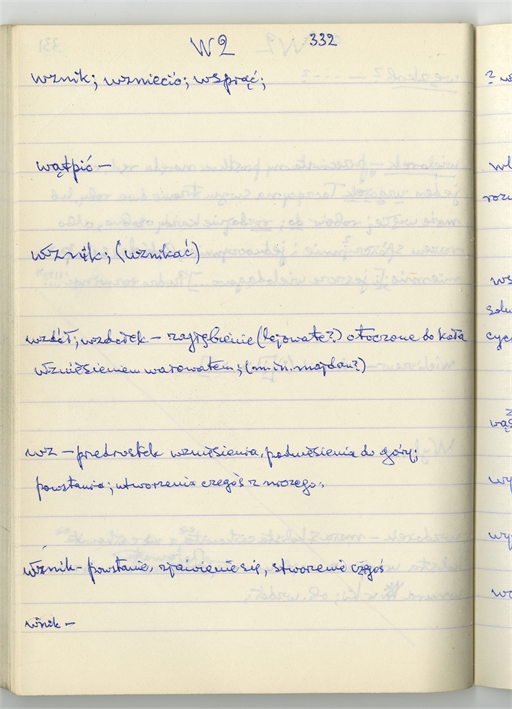 W2 332
wznik; wzniecić; wsprąć;
wątpić —
wznik; (wznikać)
wzdół; wzdołek — zagłębienie (lejowate?) otoczone do koła
wzniesieniem warowałem; (m.in. majdan?)
wz — przedrostek wzniesienia, podniesienia do góry;
powstania; utworzenia czegoś z niczego.
wznik - powstanie, zjawienie się, stworzenie czegoś
wnik —